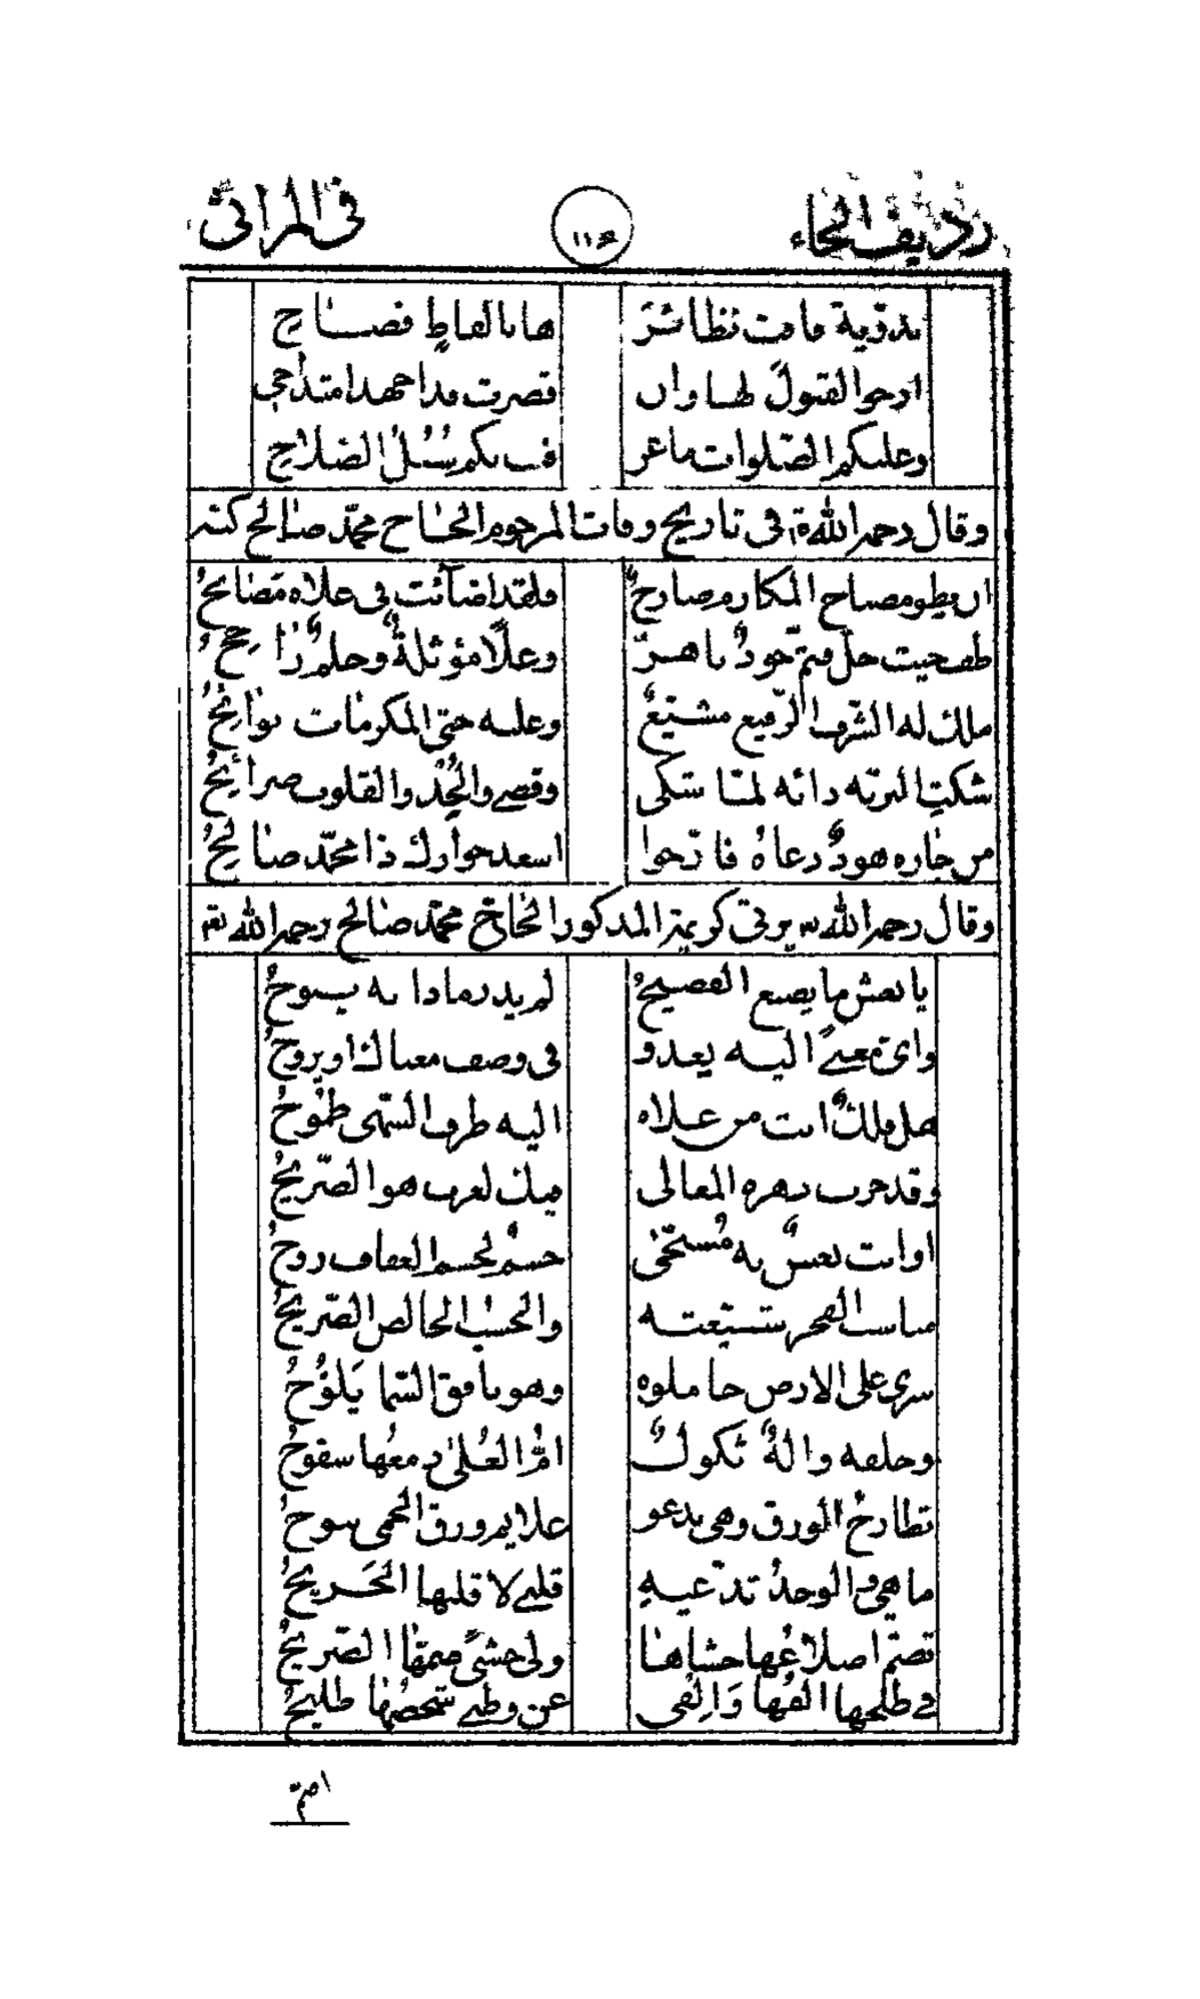 رديف الحاء ١١٤ في المراثي
بدوية فاقت نظائر ها بالفاظ فصاح
ارجو القبول لها وان قصرت مداحمها امتداحي
وعليكم الصلوات ما عر ف بكم سبل الصلاح
وقال رحمه الله في تاريخ وفات المرحوم الحاج محمد صالح كبه
ان يطو مصباح المكارم صارح فلقد اضائت في علاه مصابح
طف حيث حل فثم جود باهر وعلا مؤثلة وحلم راجح
ملك له الشرف الرفيع مشيع وعليه حتى المكرمات نوائح
شكت البرية دائه لما شكى وقضى والقلوب صرائح
من جاره هود دعاه فارخوا اسعد جوارك ذا محمد صالح
وقال رحمه الله يرثي كريمة المذكور الحاج محمد صالح رحمه الله
يا نعش ما يصنع الفصيح لم يدر ماذا به يبوح
واي معنى اليه يغدو في وصف معناك او يروح
هل فلك انت من علاه اليه طرف السهى طموح
وقد حوت زهرة المعالي فيك لغرب هو الضريح
او انت نعش به مسجى جسم لجسم العفاف روح
مناسب الفخر شيعته والحسب الخالص الصريح
سرى على الارض حاملوه وهو بافق السما يلوح
وخلفه والة ثكول ام العلى دمعها سفوح
تطارح الورق وهي تدعو علام ورق الحمى تنوح
ما هي والوجد تدعيه قلبي لا قلبها الجريح
تضم اضلاعها حشاها ولي حشى ضمها الضريح
في طلحها الفها والفي عن وطني شخصها طليح